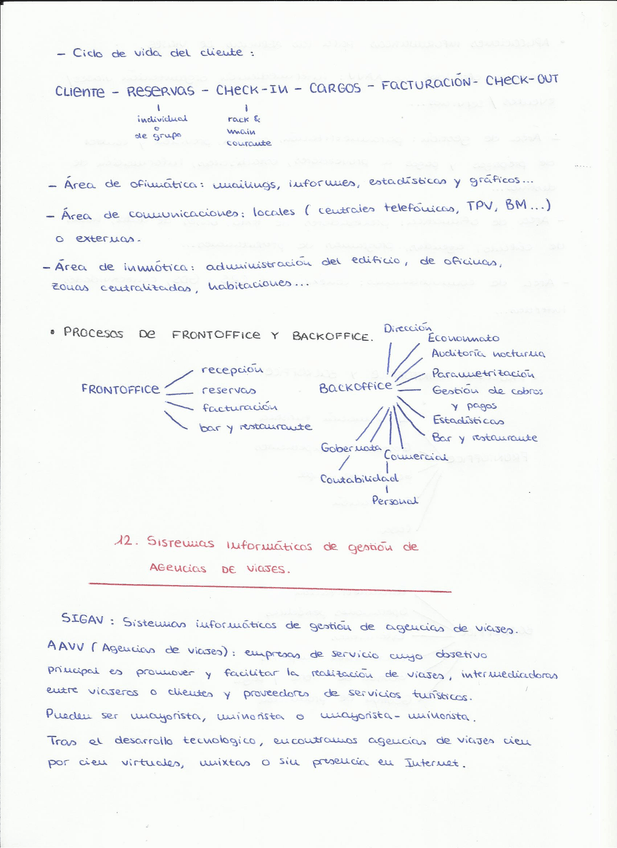 - Ciclo de vida del cliente :
CLIENTE - RESERVAS - CHECK-IN - CARGOS - FACTURACIÓN - CHECK-OUT
individual
o
de grupo
rack &
main
courante
- Área de ofimática: mailings, informes, estadísticas y gráficos...
- Área de comunicaciones: locales ( centrales telefónicas, TPV, BM...)
o externas.
- Área de inmótica: administración del edificio, de oficinas,
zonas centralizadas, habitaciones...
• PROCESOS DE FRONTOFFICE Y BACKOFFICE.
FRONTOFFICE
recepción
reservas
facturación
bar y restaurante
BACKOFFICE
Dirección
Economato
Auditoría nocturna
Parametrización
Gestión de cobros
y pagos
Estadísticas
Bar y restaurante
Gobernata
Comercial
Contabilidad
Personal
12. SISTEMAS INFORMÁTICOS de gestión de
AGENCIAS DE VIAJES.
SIGAV : Sistemas informáticos de gestión de agencias de viajes.
AAVV ( Agencias de viajes) : empresas de servicio cuyo objetivo
principal es promover y facilitar la realización de viajes, intermediadoras
entre viajeros o clientes y proveedores de servicios turísticos.
Pueden ser mayorista, minorista o mayorista - minorista.
Tras el desarrollo tecnologico, encontramos agencias de viajes cien
por cien virtuales, mixtas o sin presencia en Internet.